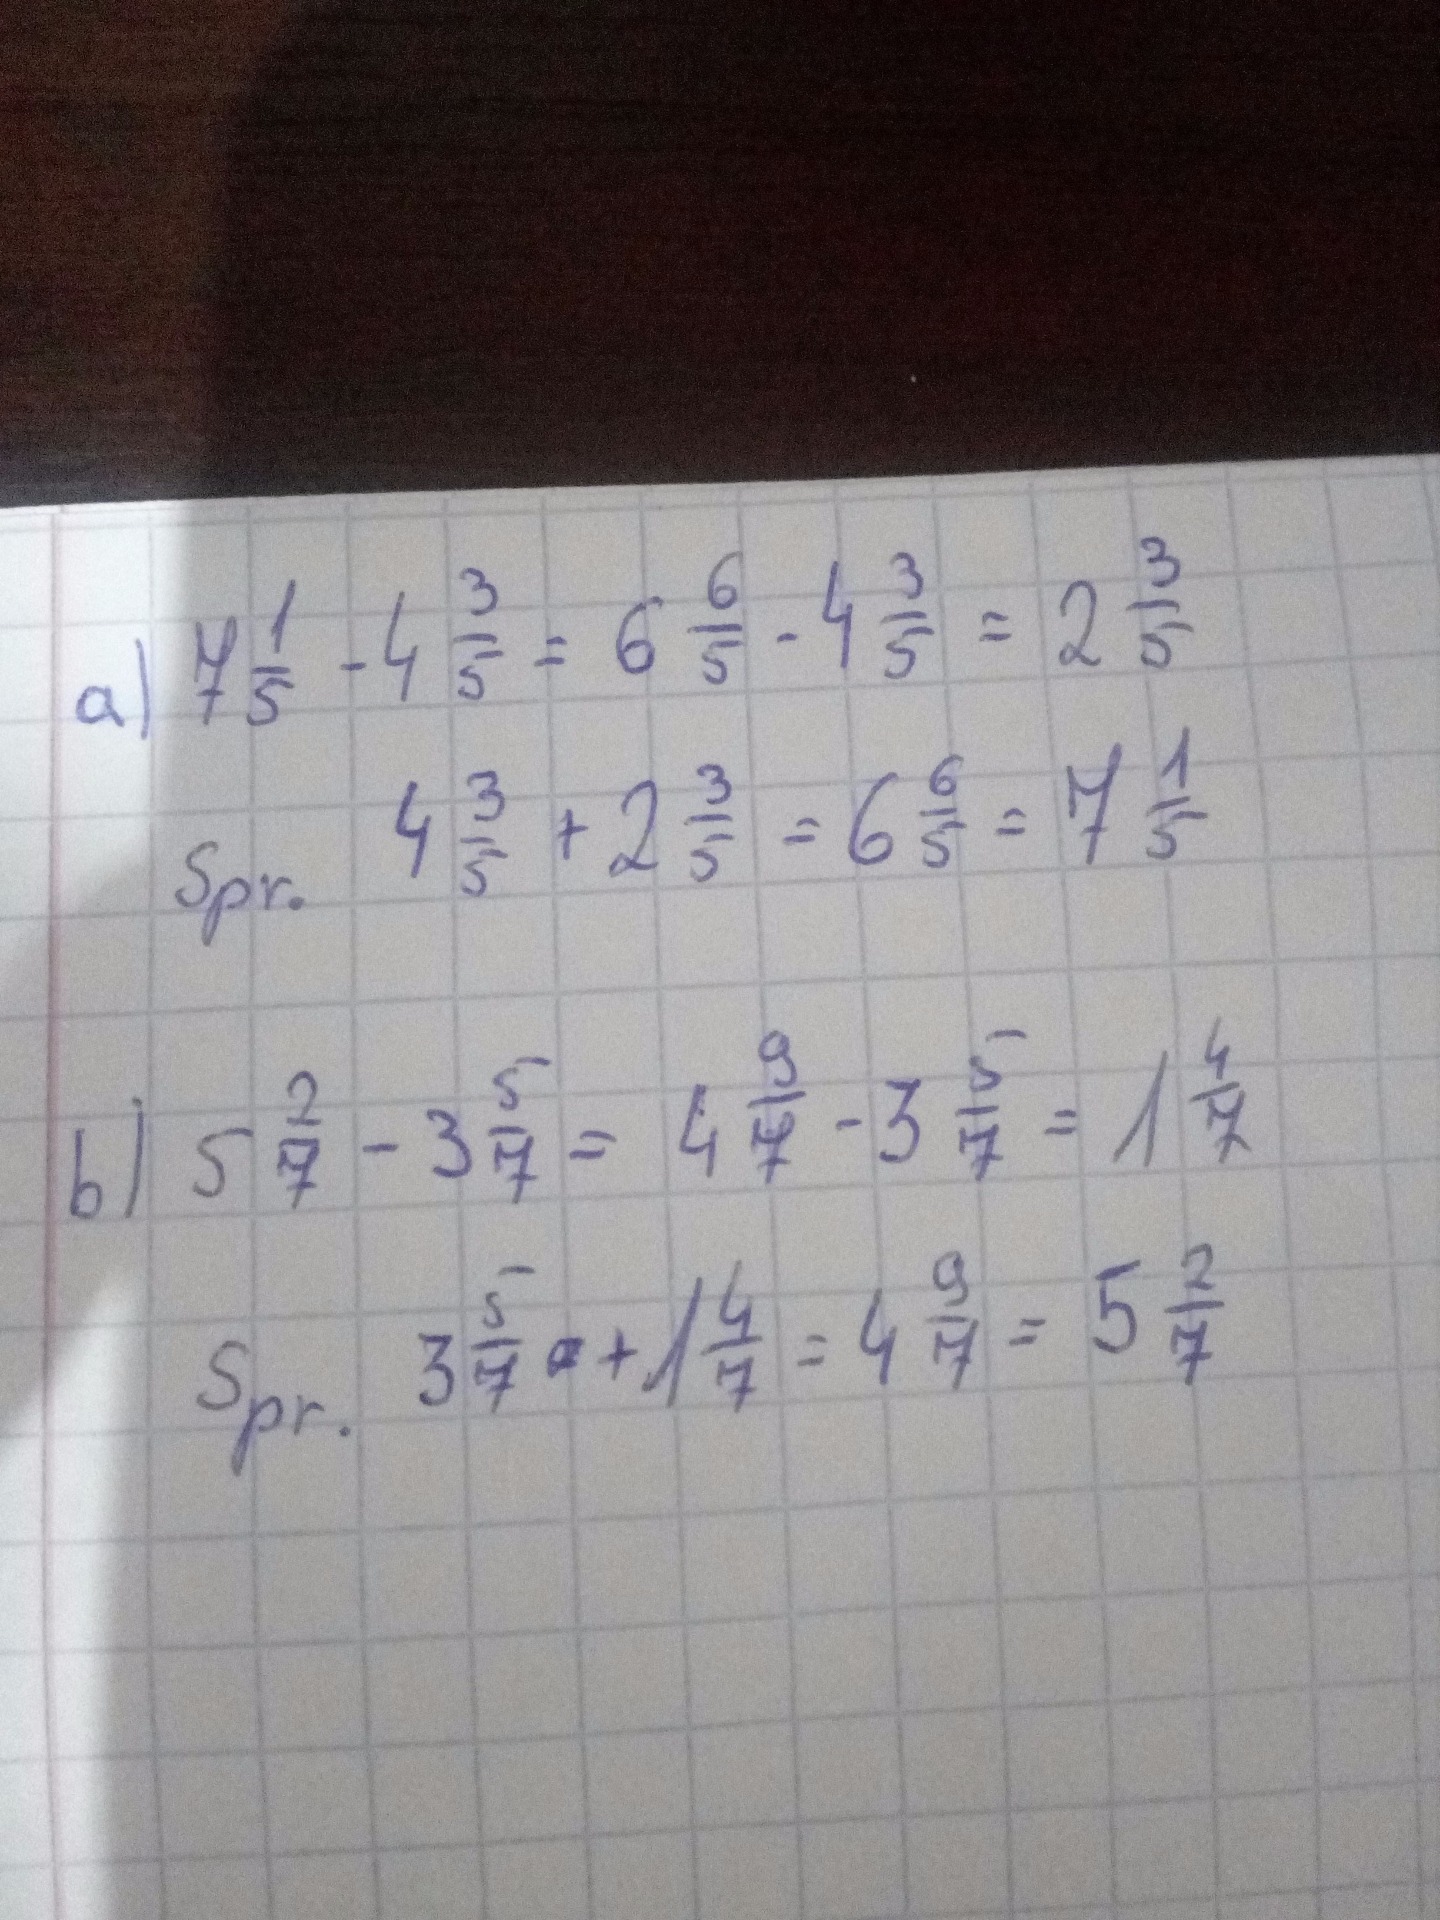 a) 7 1/5 - 4 3/5 = 6 6/5 - 4 3/5 = 2 3/5
Spr. 4 3/5 + 2 3/5 = 6 6/5 = 7 1/5
b) 5 2/7 - 3 5/7 = 4 9/7 - 3 5/7 = 1 4/7
Spr. 3 5/7 + 1 4/7 = 4 9/7 = 5 2/7